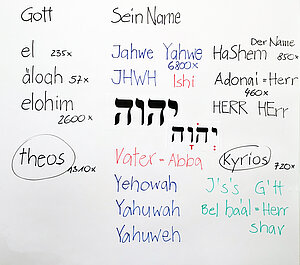 Gott
el 235x
äloah 57x
elohim
2600x
theos
1310x
Sein Name
Jahwe Yahwe
6800x
JHWH Ishi
יהוה
יְהֹוָה
Vater - Abba
Yehowah
Yahuwah
Yahuweh
Der Name
HaShem 850x
Adonai = Herr
460x
HERR HErr
Kyrios
720x
J's's G'tt
Bel ba'al = Herr
shav